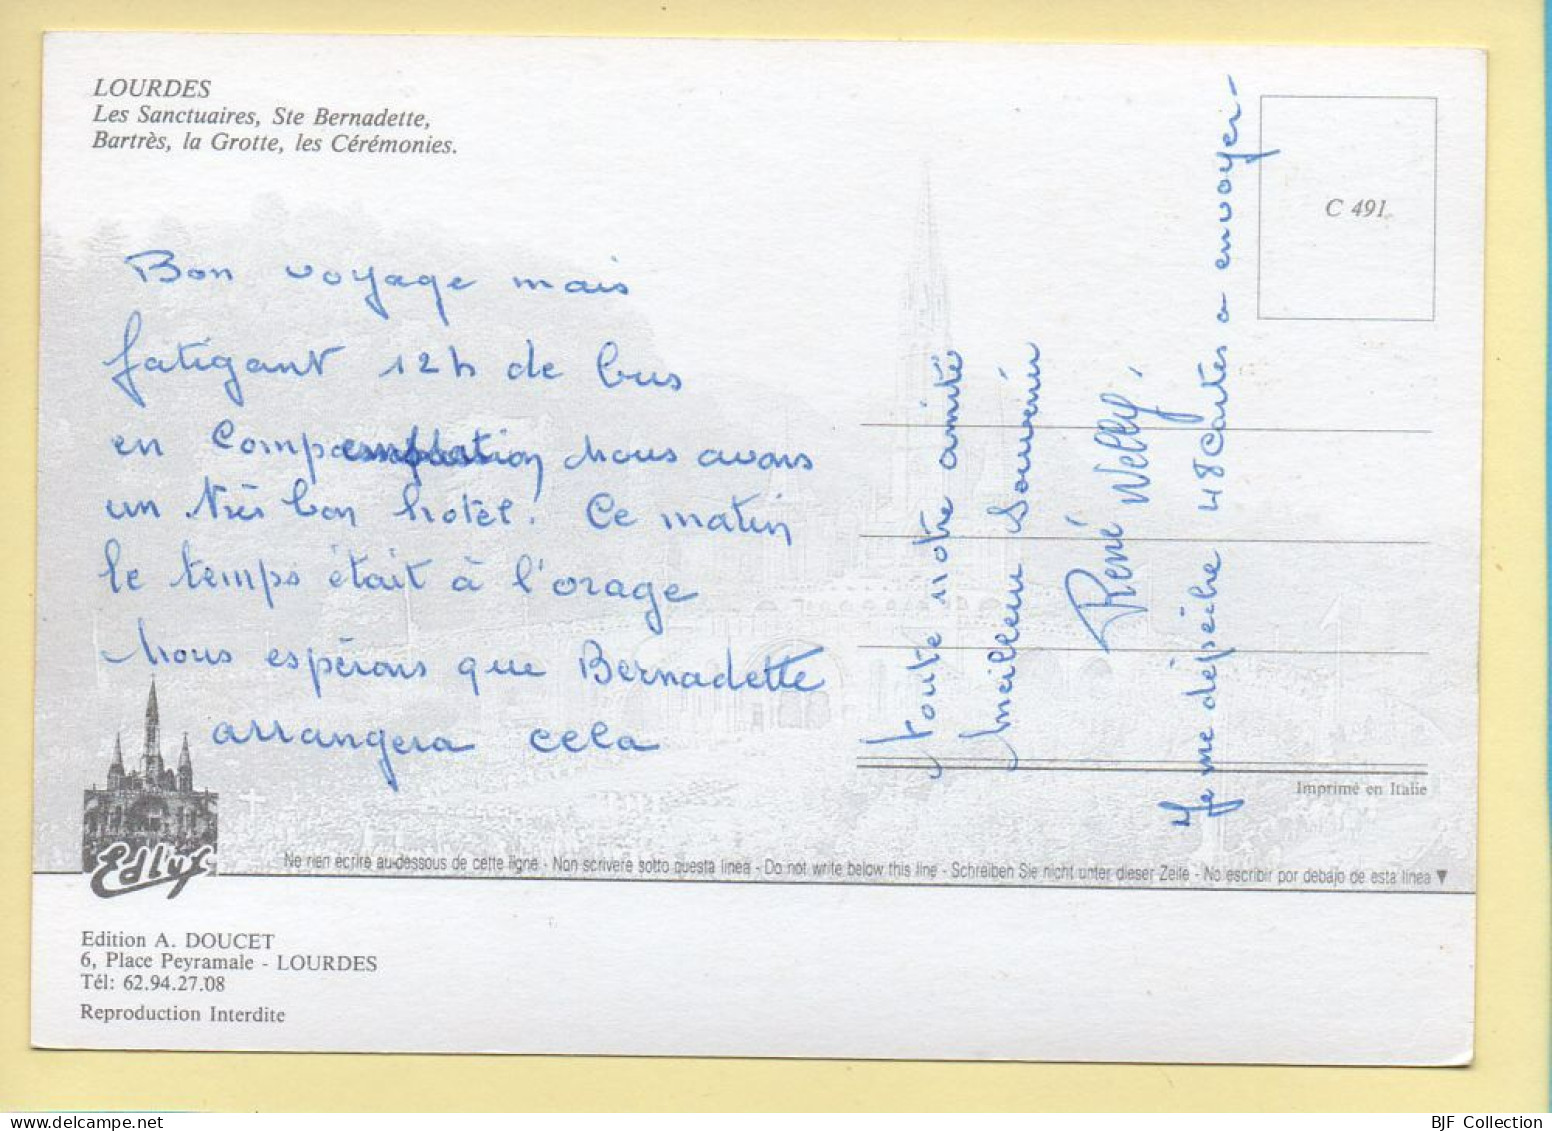 LOURDES
Les Sanctuaires, Ste Bernadette,
Bartrès, la Grotte, les Cérémonies.
Bon voyage mais
fatigant 12h de bus
en nous avons
un très bon hotel. Ce matin
le temps était à l'orage
Nous espérons que Bernadette
arrangera cela
toute notre amitié
meilleur Souvenir
René Welly.
Je me dépêche 48 Cartes a envoyer-
C 491
Imprimé en Italie
Edlys
Ne rien écrire au-dessous de cette ligne - Non scrivere sotto questa linea - Do not write below this line - Schreiben Sie nicht unter dieser Zeile - No escribir por debajo de esta linea ▼
Edition A. DOUCET
6, Place Peyramale - LOURDES
Tél: 62.94.27.08
Reproduction Interdite
BJF Collection